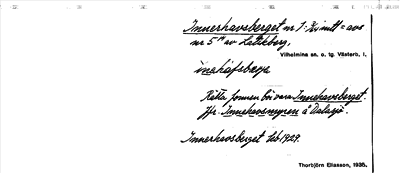 Innerhavsberget nr 1. avs
nr 5 av Latikberg,
Vilhelmina sn. o. tg. Västerb. l.
Rätta formen bör vara Innehavsberget.
Jfr. Innehavsmyren å Dalasjö.
Innerhavsberget 1929.
Thorbjörn Eliasson, 1935.